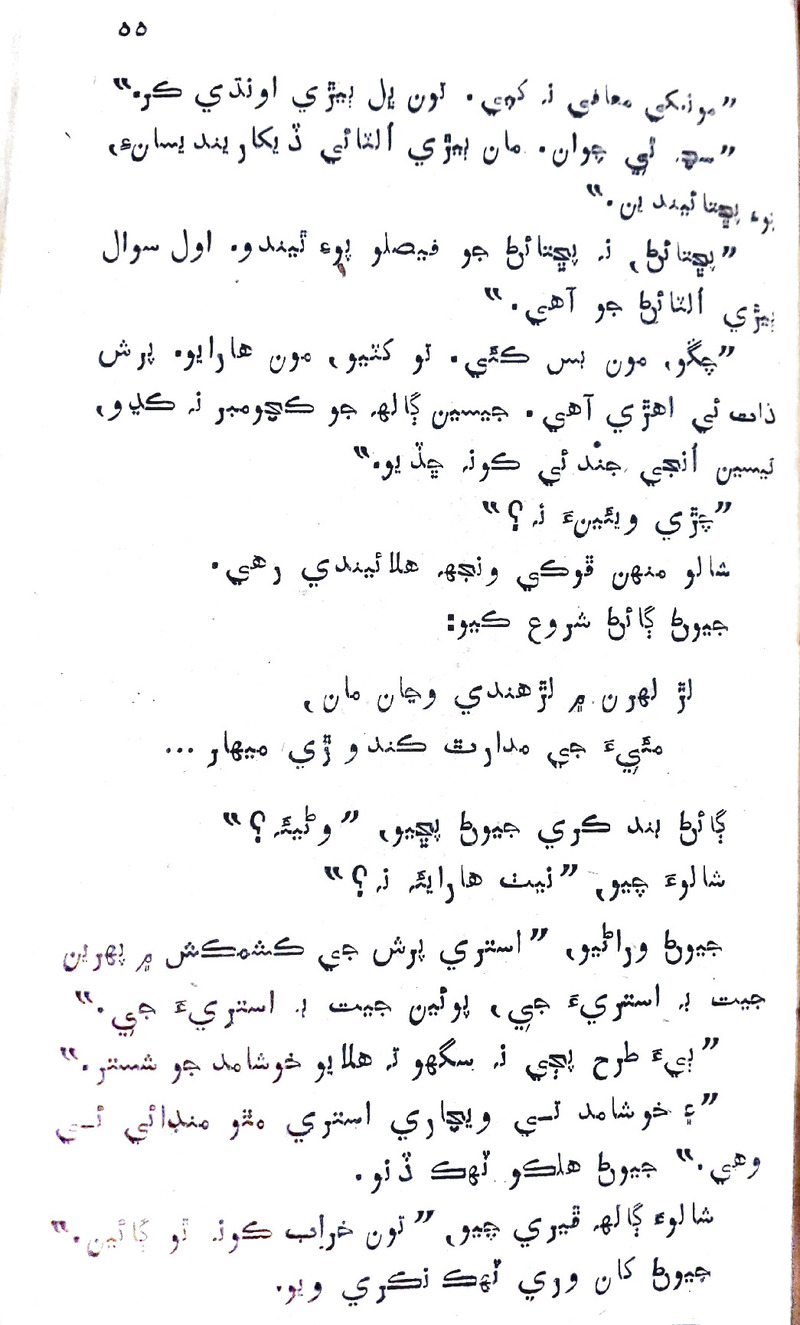 ۵۵
”مونکي معافي نہ کپي. تون ڀل ٻيڙي اونڌي ڪر.“
”سچ ٿي چوان. مان ٻيڙي اُلٽائي ڏيکاريندي­سانءِ،
پوءِ پڇتائيندين.“
”پڇتائڻ، نہ پڇتائڻ جو فيصلو پوءِ ٿيندو. اول سوال
ٻيڙي اُلٽائڻ جو آهي.“
”چڱو، مون بس ڪئي. تو کٽيو، مون هارايو. پرش
ذات ئي اهڙي آهي. جيسين ڳالھہ جو ڪچومبر نہ ڪڍو،
تيسين اُنجي جند ئي ڪونہ ڇڏيو.“
”چڙي ويئينءَ نہ؟“
شالو منهن ڦوڪي ونجھہ هلائيندي رهي.
جيوڻ ڳائڻ شروع ڪيو:
لڙ لهرن ۾ لڙهندي وڃان مان،
مئيءَ جي مدارت ڪندو ڙي ميهار ...
ڳائڻ بند ڪري جيوڻ پڇيو، ”وڻيئہ؟“
شالوءَ چيو، ”نيٺ هارايئہ نہ؟“
جيوڻ وراڻيو، ”استري پرش جي ڪشمڪش ۾ پهرين
جيت بہ استريءَ جي، پوئين جيت بہ استريءَ جي.“
”ٻيءَ طرح پڄي نہ سگهو تہ هلايو خوشامد جو شستر.“
”۽ خوشامد تي ويچاري استري مٿو منڊائي ٿي
وهي.“ جيوڻ هلڪو ٽهڪ ڏنو.
شالوءَ ڳالھہ ڦيري چيو، ”تون خراب ڪونہ ٿو ڳائين.“
جيوڻ کان وري ٽهڪ نڪري ويو.